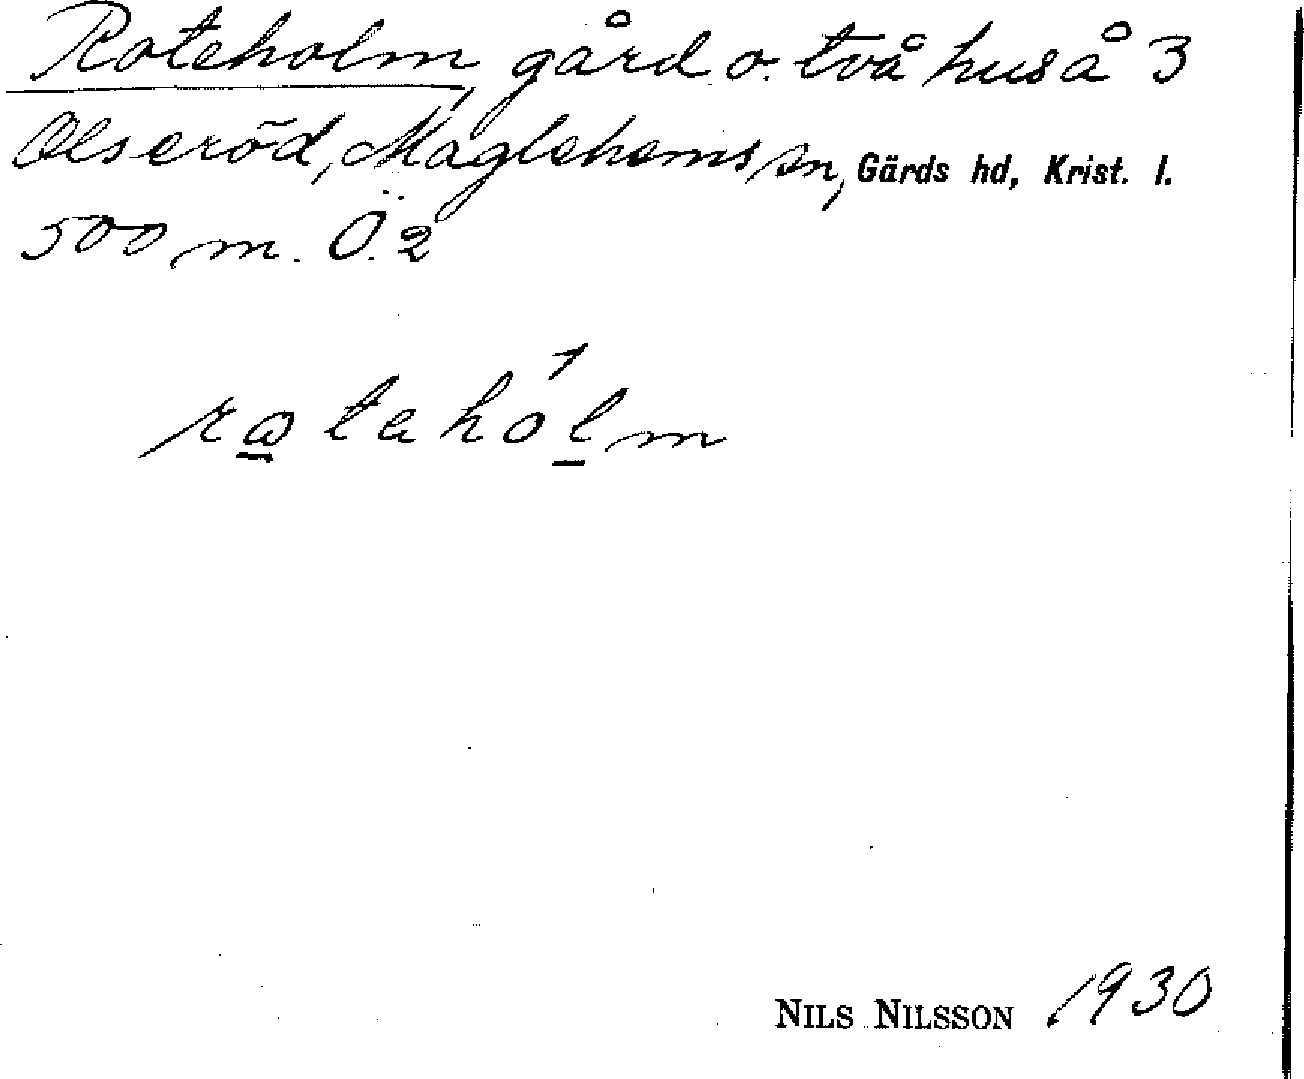 Roteholm, gård o. två hus å 3
Olseröd, Maglehems sn, Gärds hd, Krist. l.
500 m. Ö. 2
rotahólm
NILS NILSSON 1930